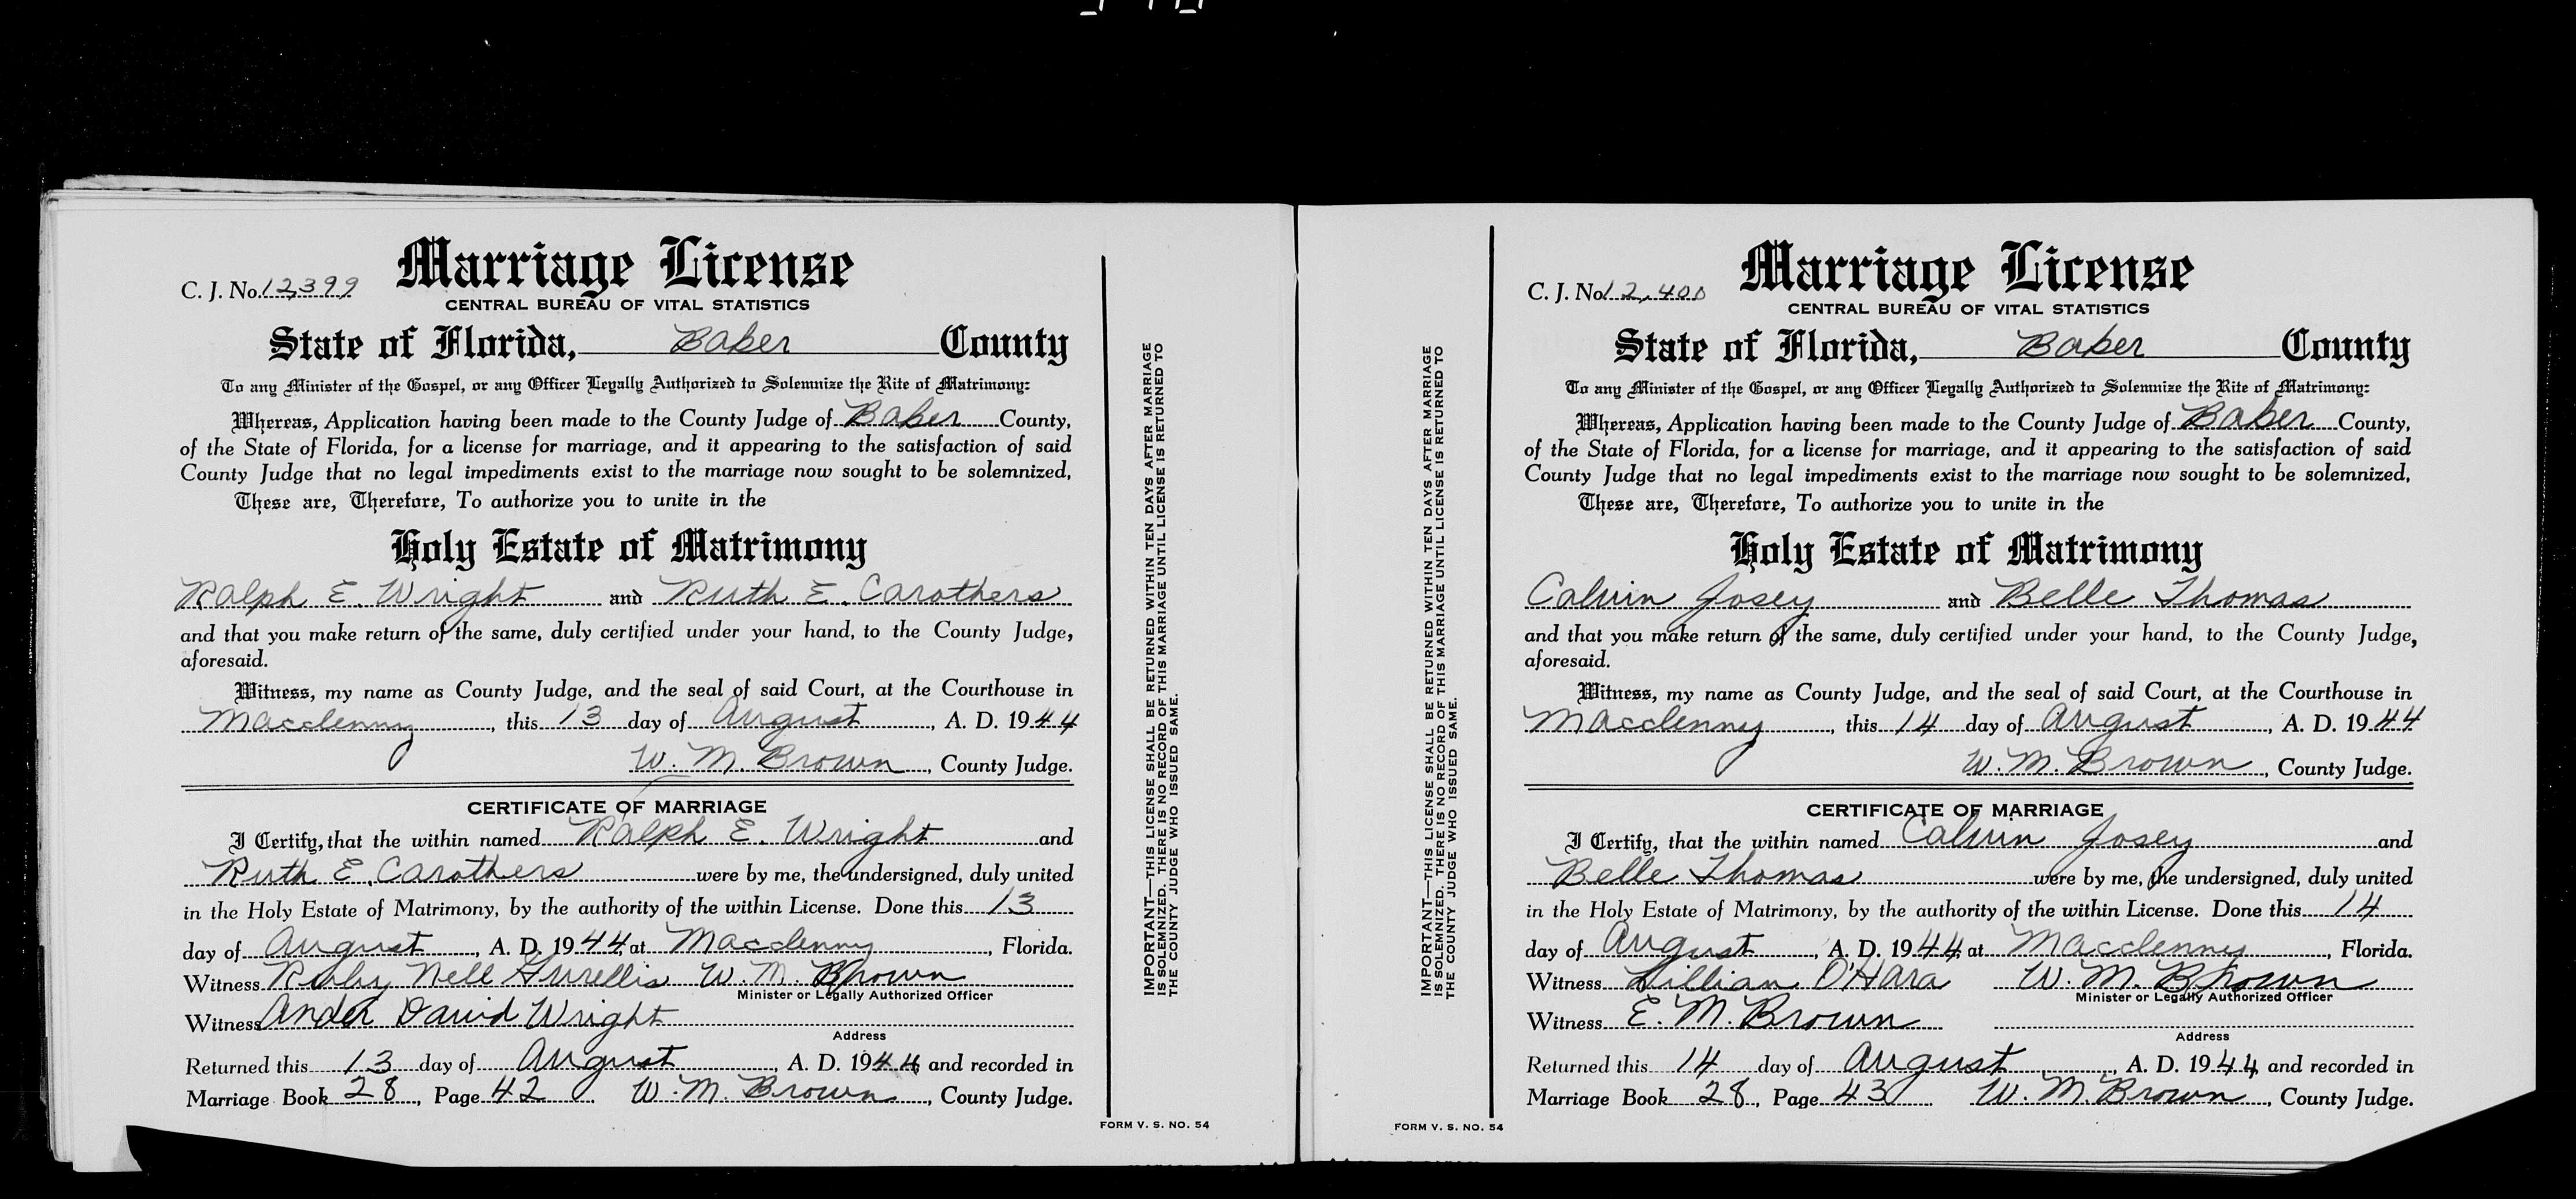 Marriage License
C. J. No. 12,399
CENTRAL BUREAU OF VITAL STATISTICS
State of Florida, Baker County
To any Minister of the Gospel, or any Officer Legally Authorized to Solemnize the Rite of Matrimony:
Whereas, Application having been made to the County Judge of Baker County,
of the State of Florida, for a license for marriage, and it appearing to the satisfaction of said
County Judge that no legal impediments exist to the marriage now sought to be solemnized,
These are, Therefore, To authorize you to unite in the
Holy Estate of Matrimony
Ralph E. Wright and Ruth E. Carothers
and that you make return of the same, duly certified under your hand, to the County Judge,
aforesaid.
Witness, my name as County Judge, and the seal of said Court, at the Courthouse in
Macclenny, this 13 day of August, A. D. 1944
W. M. Brown, County Judge.
CERTIFICATE OF MARRIAGE
I Certify, that the within named Ralph E. Wright and
Ruth E. Carothers were by me, the undersigned, duly united
in the Holy Estate of Matrimony, by the authority of the within License. Done this 13
day of August, A. D. 1944, at Macclenny, Florida.
Witness Ruby Nell W. M. Brown
Minister or Legally Authorized Officer
Witness David Wright
Address
Returned this 13 day of August, A. D. 1944 and recorded in
Marriage Book 28, Page 42 W. M. Brown, County Judge.
IMPORTANT—THIS LICENSE SHALL BE RETURNED WITHIN TEN DAYS AFTER MARRIAGE
IS SOLEMNIZED. THERE IS NO RECORD OF THIS MARRIAGE UNTIL LICENSE IS RETURNED TO
THE COUNTY JUDGE WHO ISSUED SAME.
FORM V. S. NO. 54
Marriage License
C. J. No. 12,400
CENTRAL BUREAU OF VITAL STATISTICS
State of Florida, Baker County
To any Minister of the Gospel, or any Officer Legally Authorized to Solemnize the Rite of Matrimony:
Whereas, Application having been made to the County Judge of Baker County,
of the State of Florida, for a license for marriage, and it appearing to the satisfaction of said
County Judge that no legal impediments exist to the marriage now sought to be solemnized,
These are, Therefore, To authorize you to unite in the
Holy Estate of Matrimony
Calvin Josey and Belle Thomas
and that you make return of the same, duly certified under your hand, to the County Judge,
aforesaid.
Witness, my name as County Judge, and the seal of said Court, at the Courthouse in
Macclenny, this 14 day of August, A. D. 1944
W. M. Brown, County Judge.
CERTIFICATE OF MARRIAGE
I Certify, that the within named Calvin Josey and
Belle Thomas were by me, the undersigned, duly united
in the Holy Estate of Matrimony, by the authority of the within License. Done this 14
day of August, A. D. 1944, at Macclenny, Florida.
Witness Lillian O'Hara W. M. Brown
Minister or Legally Authorized Officer
Witness E. M. Brown
Address
Returned this 14 day of August, A. D. 1944 and recorded in
Marriage Book 28, Page 43 W. M. Brown, County Judge.
IMPORTANT—THIS LICENSE SHALL BE RETURNED WITHIN TEN DAYS AFTER MARRIAGE
IS SOLEMNIZED. THERE IS NO RECORD OF THIS MARRIAGE UNTIL LICENSE IS RETURNED TO
THE COUNTY JUDGE WHO ISSUED SAME.
FORM V. S. NO. 54